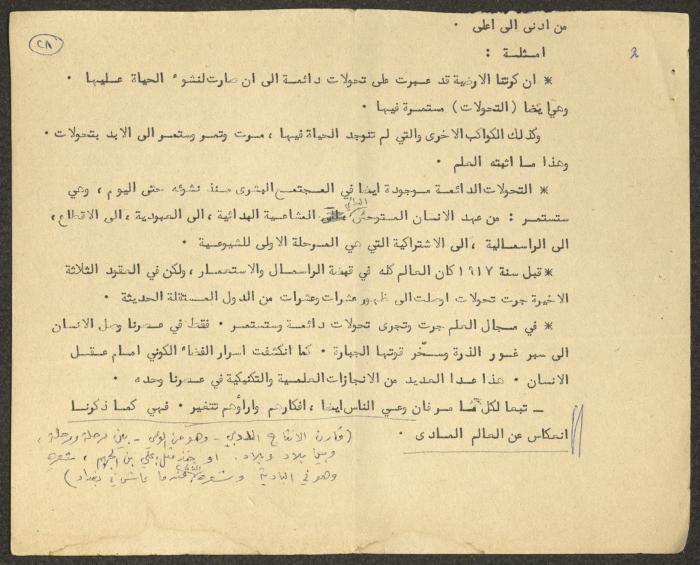 من ادنى الى اعلى .
٢٨
2
امثلة :
* ان كرتنا الارضية قد عبرت على تحولات دائمة الى ان صارت لنشوء الحياة عليها .
وهي ايضا (التحولات) مستمرة فيها .
وكذلك الكواكب الاخرى والتي لم تتوجد الحياة فيها ، مرت وتمر وستمر الى الابد بتحولات .
وهذا ما اثبته العلم .
* التحولات الدائمة موجودة ايضا في المجتمع البشرى منذ نشوئه حتى اليوم ، وهي
ستستمر : من عهد الانسان المتوحش الى المشاعية البدائية ، الى العبودية ، الى الاقطاع ،
الى الراسمالية ، الى الاشتراكية التي هي المرحلة الاولى للشيوعية .
* قبل سنة ١٩١٧ كان العالم كله في قبضة الراسمال والاستعمار ، ولكن في العقود الثلاثة
الاخيرة جرت تحولات اوصلت الى ظهور عشرات وعشرات من الدول المستقلة الحديثة .
* في مجال العلم جرت وتجرى تحولات دائمة وستستمر . فقط في عصرنا وصل الانسان
الى سبر غور الذرة وسخّر قوتها الجبارة . كما انكشفت اسرار الفضاء الكوني امام عقل
الانسان . هذا عدا العديد من الانجازات العلمية والتكنيكية في عصرنا وحده .
ـ تبعا لكل ما مر فان وعي الناس ايضا ، افكارهم واراؤهم تتغير . فهي كما ذكرنا
انعكاس عن العالم المادى .
(قارن الانتاج الادبي - وهو من الوعي - بين مرحلة ومرحلة ،
وبين بلاد وبلاد . او خذ مثل علي بن الجهم ، شعره
وهو في البادية وشعره عندما عاش في بغداد)